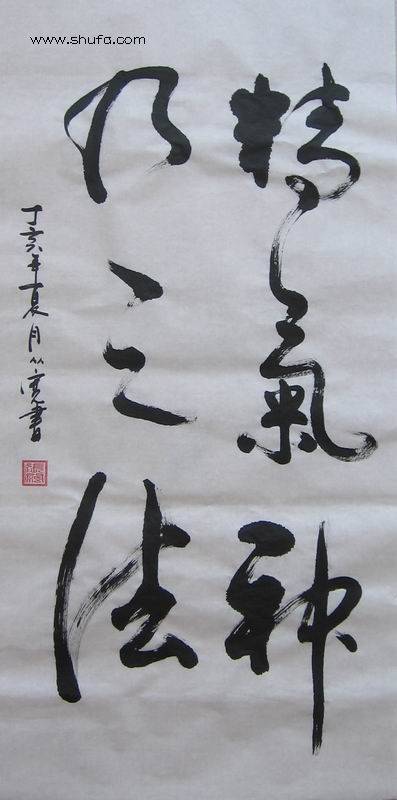 www.shufa.com
精氣神
乃之法
丁亥年夏月从寬書